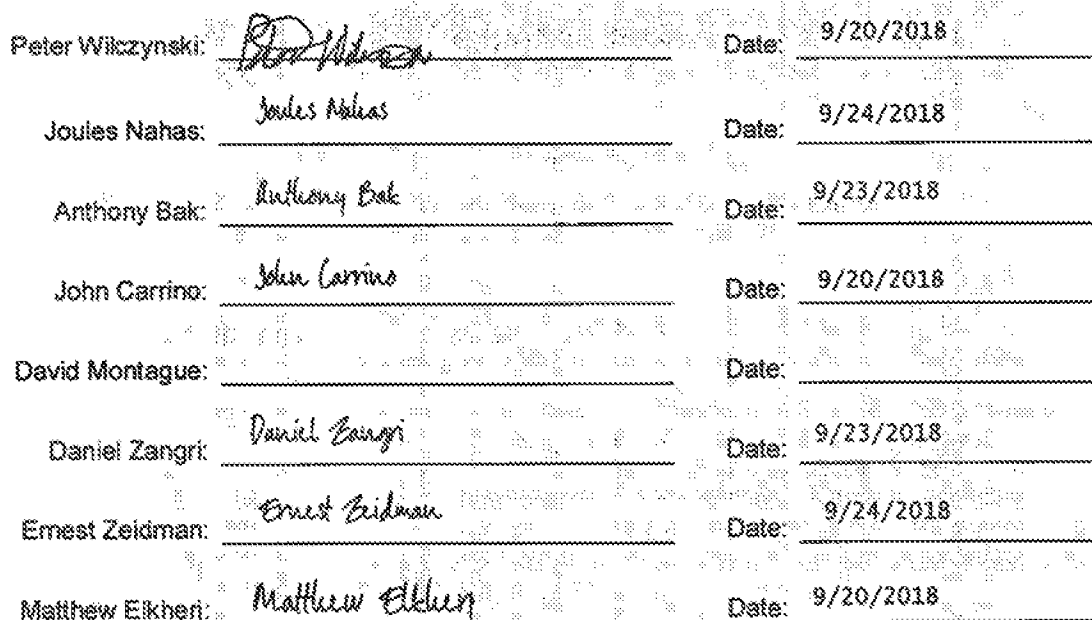 Peter Wilczynski: Date: 9/20/2018
Joules Nahas: Joules Nahas Date: 9/24/2018
Anthony Bak: Anthony Bak Date: 9/23/2018
John Carrino: John Carrino Date: 9/20/2018
David Montague: Date:
Daniel Zangri: Daniel Zangri Date: 9/23/2018
Ernest Zeidman: Ernest Zeidman Date: 9/24/2018
Matthew Elkheri: Matthew Elkheri Date: 9/20/2018